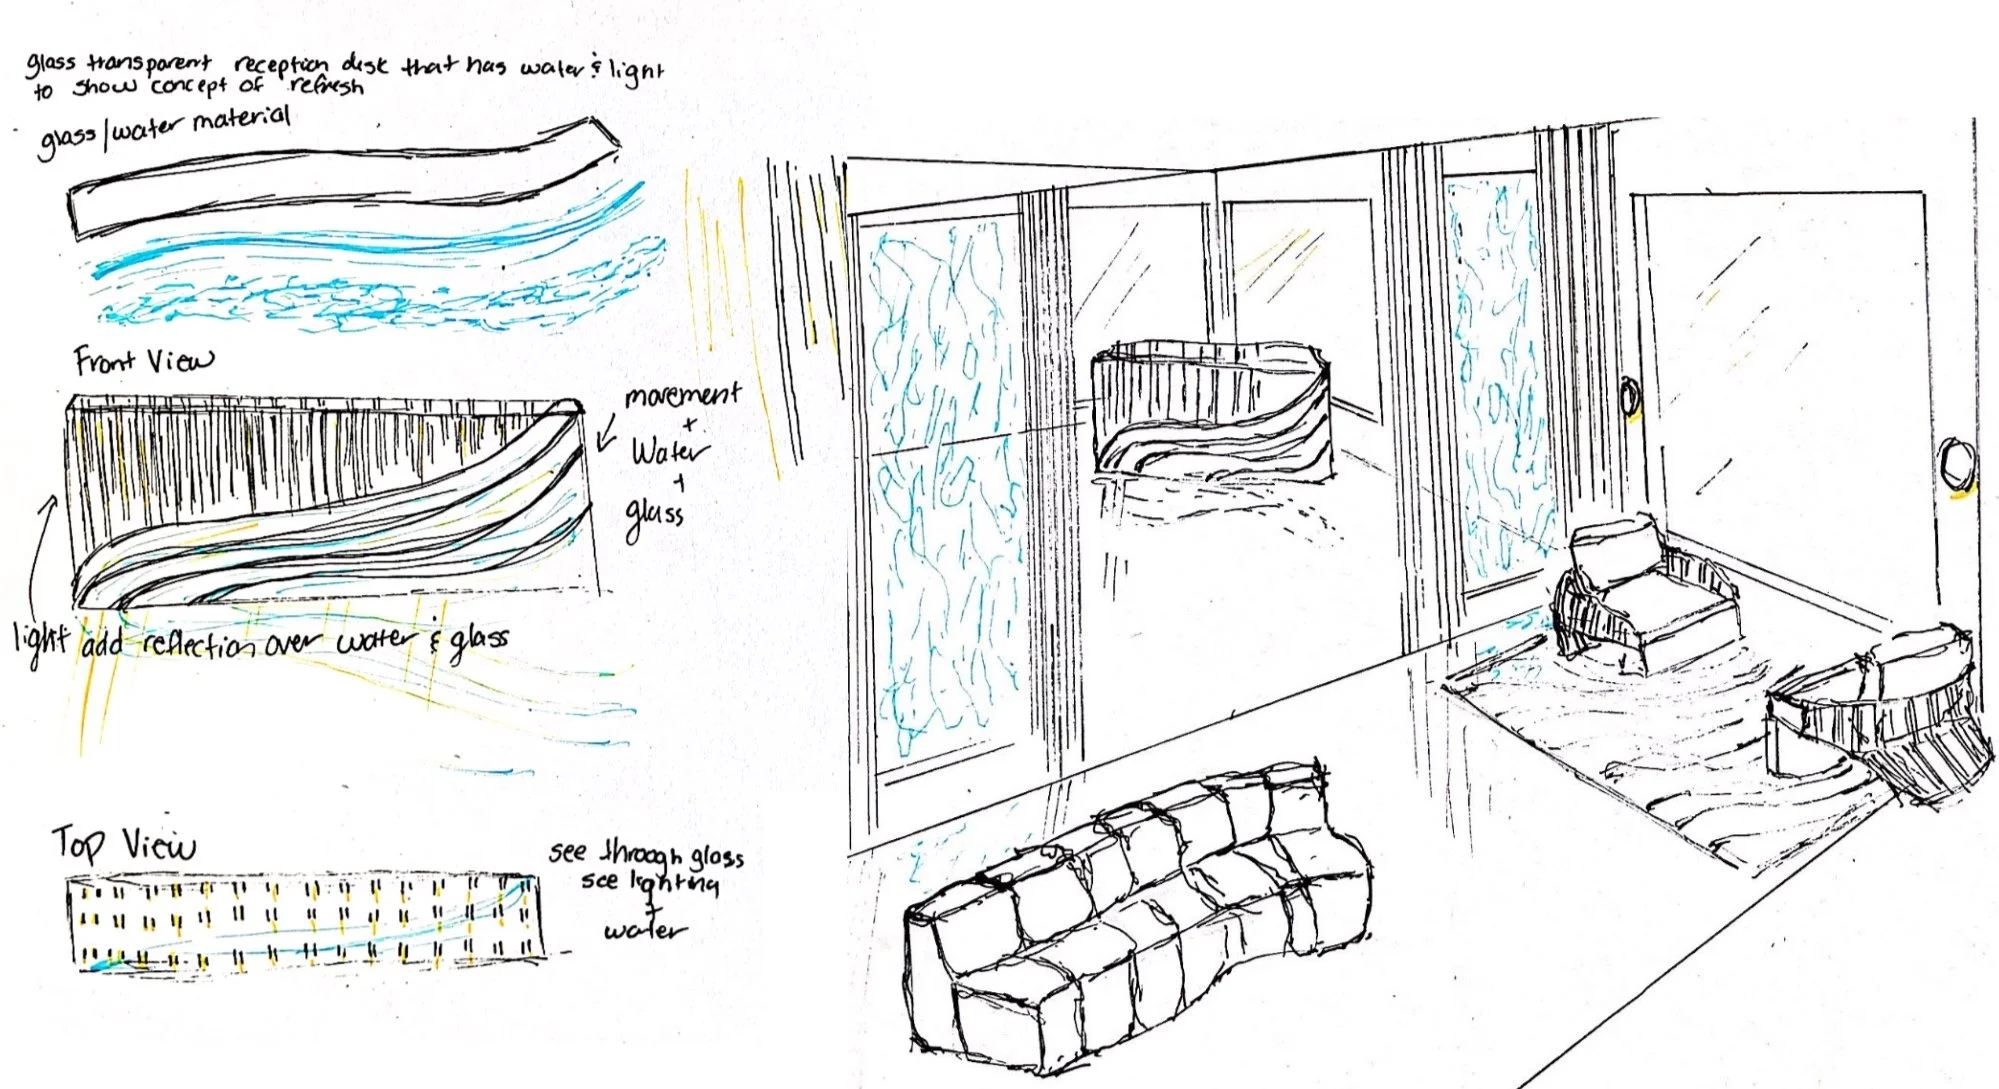 glass transparent reception disk that has water & light
to show concept of refresh
glass/water material
Front View
movement
+
Water
+
glass
light add reflection over water & glass
Top View
see through glass
see lighting
+
water